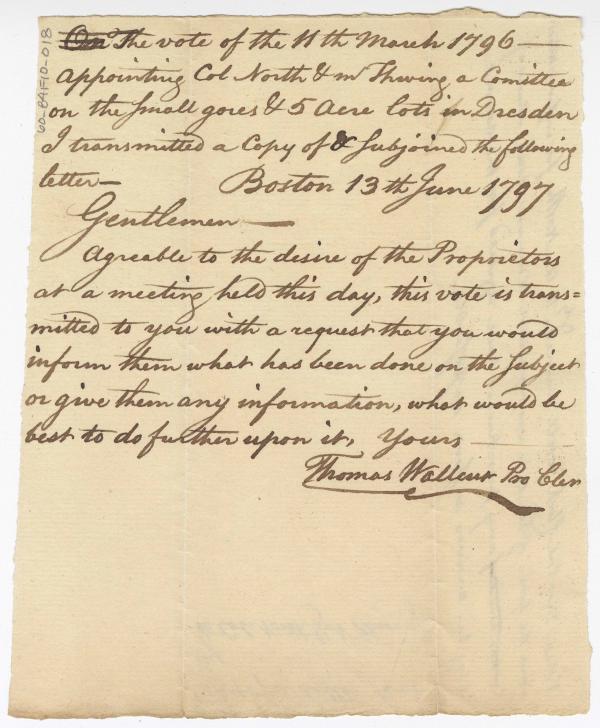 On The vote of the 11th March 1796 —
appointing Col North & mr Thwing a Comittee
on the small gores & 5 Acre lots in Dresden
I transmitted a Copy of & subjoined the following
letter — Boston 13th June 1797
Gentlemen —
Agreable to the desire of the Proprietors
at a meeting held this day, this vote is trans=
mitted to you with a request that you would
inform them what has been done on the subject
or give them any information, what would be
best to do further upon it, Yours —
Thomas Wallcut Pro Cler
60-B4F10-018